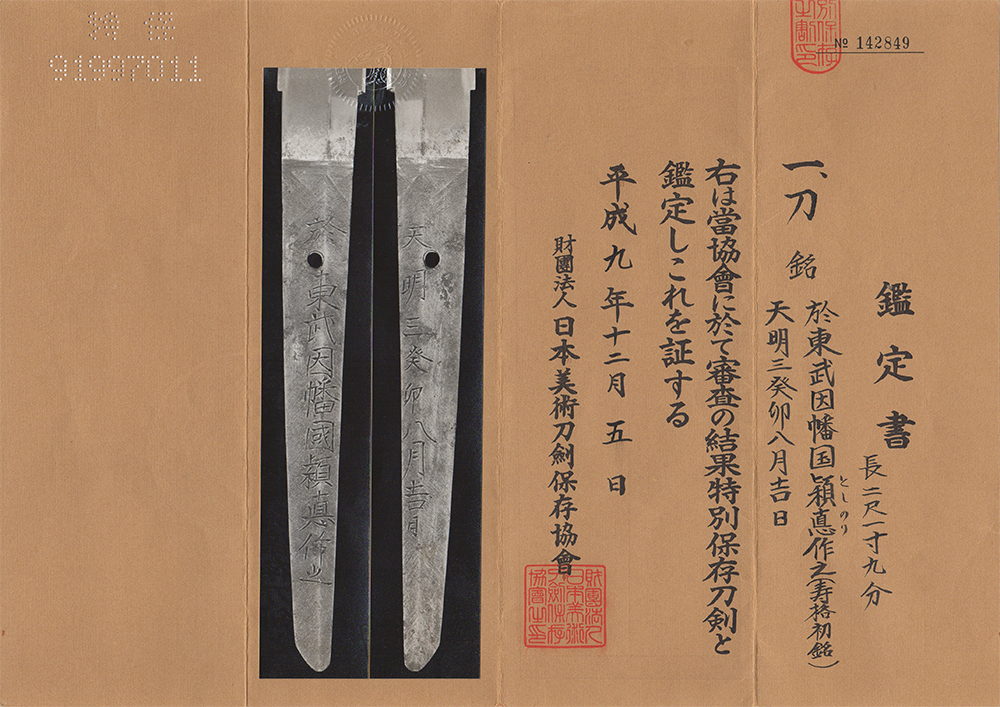 鑑定書
一、刀 銘 於東武因幡国頴悳作之(寿格初銘)
としのり
天明三癸卯八月吉日
長二尺一寸九分
右は當協會に於て審査の結果特別保存刀剣と
鑑定しこれを証する
平成九年十二月五日
財團法人日本美術刀劍保存協會
№ 142849
特保
91997011
天明三癸卯八月吉日
於東武因幡國頴悳作之